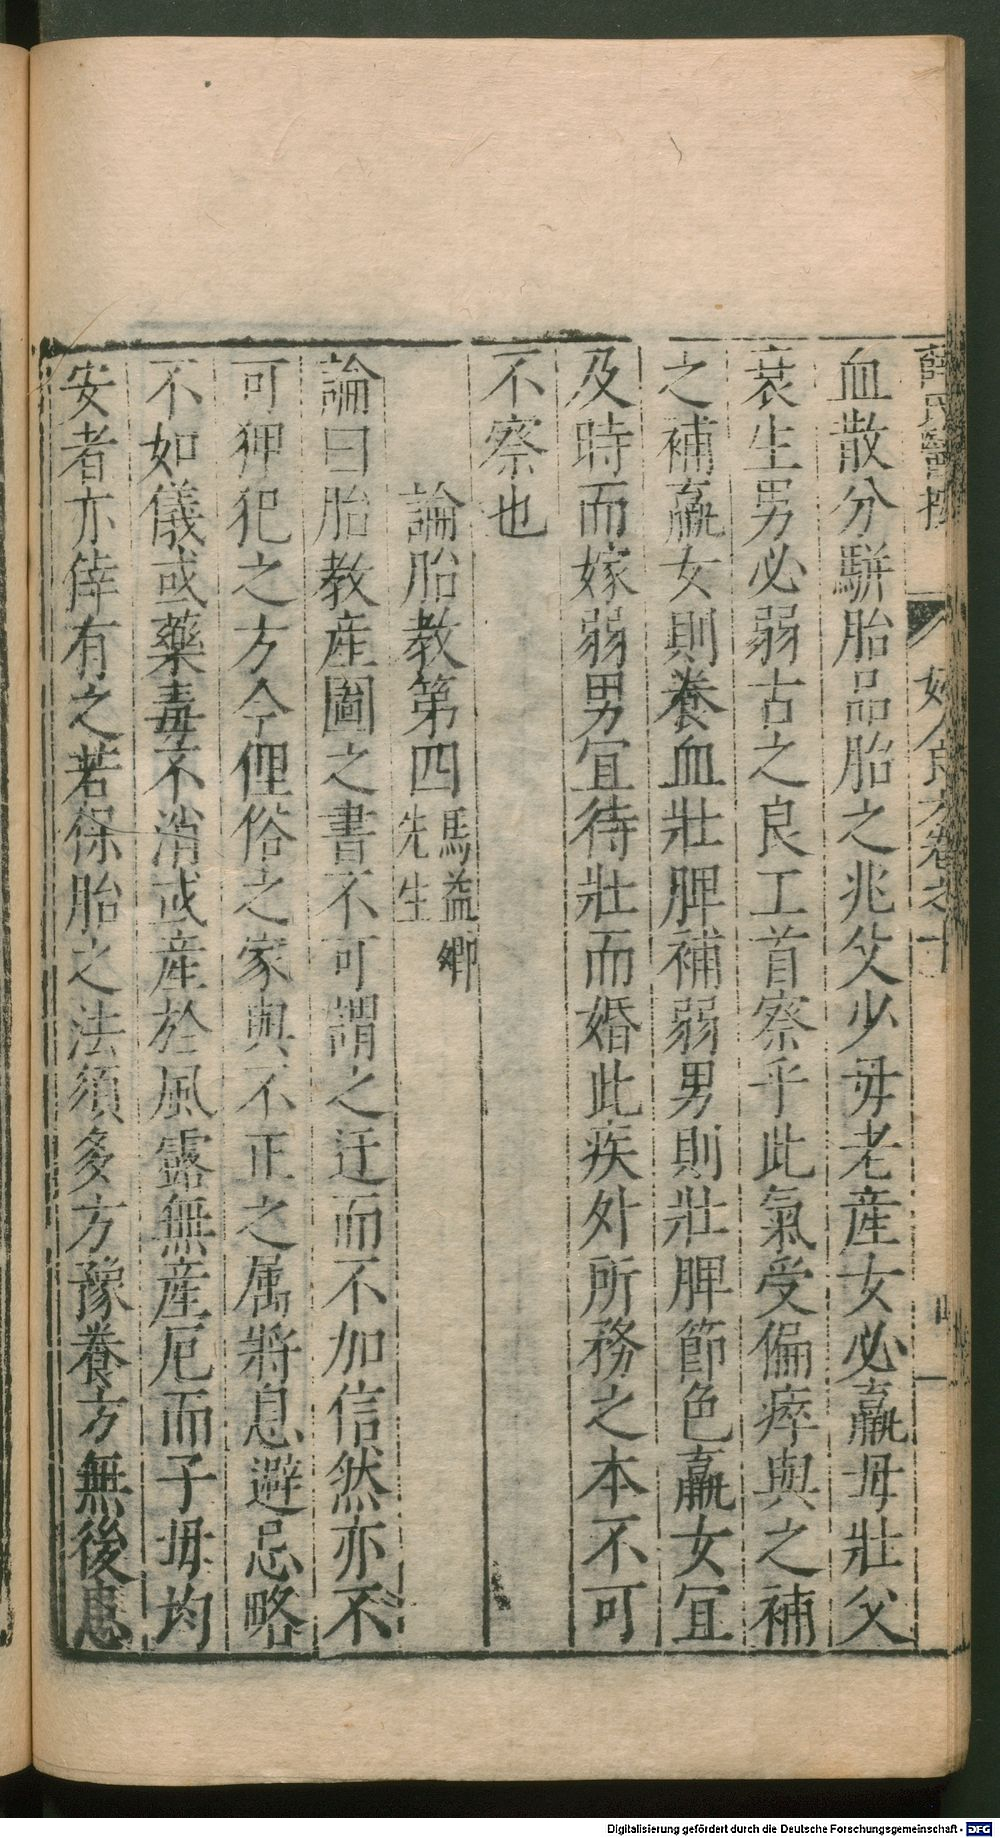 薛氏醫按 婦人良方卷之十 四
血散分駢胎品胎之兆父少母老産女必羸母壯父
衰生男必弱古之良工首察乎此氣受偏瘁與之補
之補羸女則養血壯脾補弱男則壯脾節色羸女宜
及時而嫁弱男宜待壯而婚此疾外所務之本不可
不察也
論胎教第四 馬益卿先生
論曰胎教産圖之書不可謂之迂而不加信然亦不
可狎犯之方今俚俗之家與不正之属將息避忌略
不如儀或藥毒不消或産於風露無産厄而子母均
安者亦倖有之若保胎之法須多方豫養方無後患
Digitalisierung gefördert durch die Deutsche Forschungsgemeinschaft - DFG